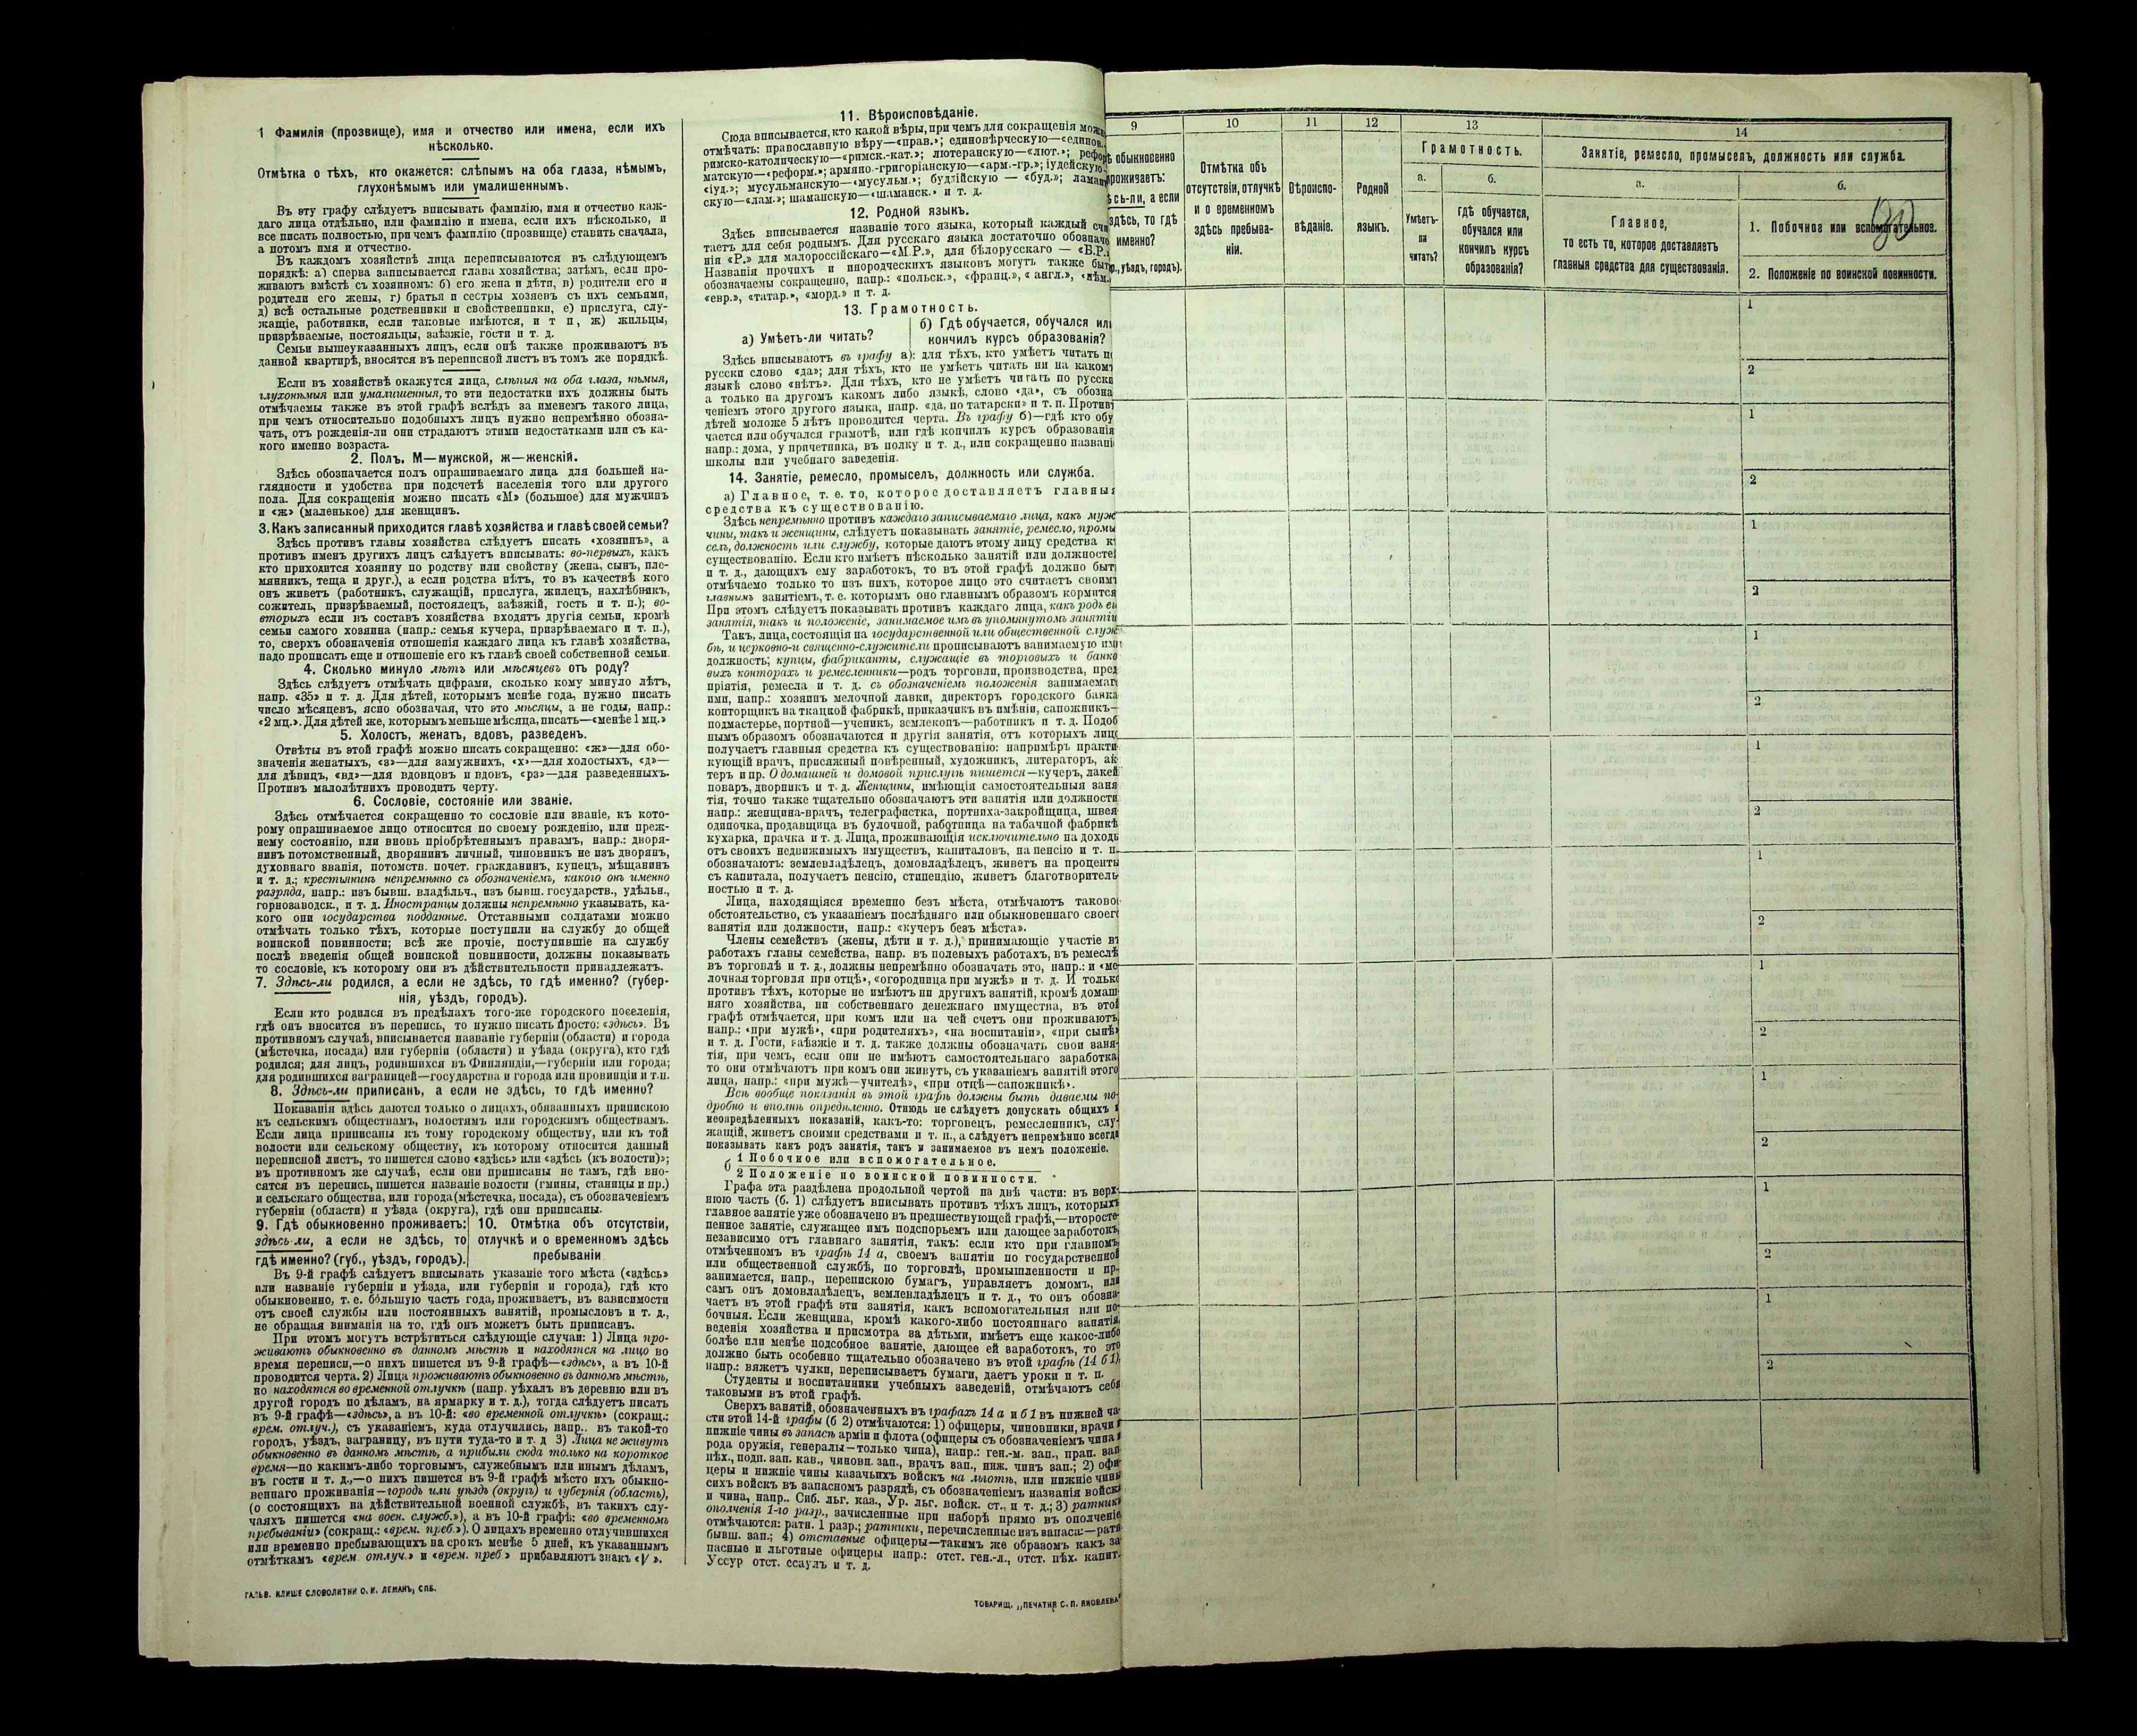 1 Фамилія (прозвище), имя и отчество или имена, если ихъ
нѣсколько.
Отмѣтка о тѣхъ, кто окажется: слѣпымъ на оба глаза, нѣмымъ,
глухонѣмымъ или умалишеннымъ.
Въ эту графу слѣдуетъ вписывать фамилію, имя и отчество каж-
даго лица отдѣльно, или фамилію и имена, если ихъ нѣсколько, и
все писать полностью, при чемъ фамилію (прозвище) ставить сначала,
а потомъ имя и отчество.
Въ каждомъ хозяйствѣ лица переписываются въ слѣдующемъ
порядкѣ: а) сперва записывается глава хозяйства; затѣмъ, если про-
живаютъ вмѣстѣ съ хозяиномъ: б) его жена и дѣти, в) родители его и
родители его жены, г) братья и сестры хозяевъ съ ихъ семьями,
д) всѣ остальные родственники и свойственники, е) прислуга, слу-
жащіе, работники, если таковые имѣются, и т п, ж) жильцы,
призрѣваемые, постояльцы, заѣзжіе, гости и т. д.
Семьи вышеуказанныхъ лицъ, если онѣ также проживаютъ въ
данной квартирѣ, вносятся въ переписной листъ въ томъ же порядкѣ.
Если въ хозяйствѣ окажутся лица, слѣпыя на оба глаза, нѣмыя,
глухонѣмыя или умалишенныя, то эти недостатки ихъ должны быть
отмѣчаемы также въ этой графѣ вслѣдъ за именемъ такого лица,
при чемъ относительно подобныхъ лицъ нужно непремѣнно обозна-
чать, отъ рожденія-ли они страдаютъ этими недостатками или съ ка-
кого именно возраста.
2. Полъ. М—мужской, ж—женскій.
Здѣсь обозначается полъ опрашиваемаго лица для большей на-
глядности и удобства при подсчетѣ населенія того или другого
пола. Для сокращенія можно писать «М» (большое) для мужчинъ
и «ж» (маленькое) для женщинъ.
3. Какъ записанный приходится главѣ хозяйства и главѣ своей семьи?
Здѣсь противъ главы хозяйства слѣдуетъ писать «хозяинъ», а
противъ именъ другихъ лицъ слѣдуетъ вписывать: во-первыхъ, какъ
кто приходится хозяину по родству или свойству (жена, сынъ, пле-
мянникъ, теща и друг.), а если родства нѣтъ, то въ качествѣ кого
онъ живетъ (работникъ, служащій, прислуга, жилецъ, нахлѣбникъ,
сожитель, призрѣваемый, постоялецъ, заѣзжій, гость и т. п.); во-
вторыхъ если въ составъ хозяйства входятъ другія семьи, кромѣ
семьи самого хозяина (напр.: семья кучера, призрѣваемаго и т. п.),
то, сверхъ обозначенія отношенія каждаго лица къ главѣ хозяйства,
надо прописать еще и отношеніе его къ главѣ своей собственной семьи.
4. Сколько минуло лѣтъ или мѣсяцевъ отъ роду?
Здѣсь слѣдуетъ отмѣчать цифрами, сколько кому минуло лѣтъ,
напр. «35» и т. д. Для дѣтей, которымъ менѣе года, нужно писать
число мѣсяцевъ, ясно обозначая, что это мѣсяцы, а не годы, напр.:
«2 мц.». Для дѣтей же, которымъ меньше мѣсяца, писать—«менѣе 1 мц.»
5. Холостъ, женатъ, вдовъ, разведенъ.
Отвѣты въ этой графѣ можно писать сокращенно: «ж»—для обо-
значенія женатыхъ, «з»—для замужнихъ, «х»—для холостыхъ, «д»—
для дѣвицъ, «вд»—для вдовцовъ и вдовъ, «рз»—для разведенныхъ.
Противъ малолѣтнихъ проводить черту.
6. Сословіе, состояніе или званіе.
Здѣсь отмѣчается сокращенно то сословіе или званіе, къ кото-
рому опрашиваемое лицо относится по своему рожденію, или преж-
нему состоянію, или вновь пріобрѣтеннымъ правамъ, напр.: дворя-
нинъ потомственный, дворянинъ личный, чиновникъ не изъ дворянъ,
духовнаго званія, потомств. почет. гражданинъ, купецъ, мѣщанинъ
и т. д.; крестьянинъ непремѣнно съ обозначеніемъ, какого онъ именно
разряда, напр.: изъ бывш. владѣльч., изъ бывш. государств., удѣльн.,
горнозаводск., и т. д. Иностранцы должны непремѣнно указывать, ка-
кого они государства подданные. Отставными солдатами можно
отмѣчать только тѣхъ, которые поступили на службу до общей
воинской повинности; всѣ же прочіе, поступившіе на службу
послѣ введенія общей воинской повинности, должны показывать
то сословіе, къ которому они въ дѣйствительности принадлежатъ.
7. Здѣсь-ли родился, а если не здѣсь, то гдѣ именно? (губер-
нія, уѣздъ, городъ).
Если кто родился въ предѣлахъ того-же городского поселенія,
гдѣ онъ вносится въ перепись, то нужно писать просто: «здѣсь». Въ
противномъ случаѣ, вписывается названіе губерніи (области) и города
(мѣстечка, посада) или губерніи (области) и уѣзда (округа), кто гдѣ
родился; для лицъ, родившихся въ Финляндіи,—губерніи или города;
для родившихся заграницей—государства и города или провинціи и т.п.
8. Здѣсь-ли приписанъ, а если не здѣсь, то гдѣ именно?
Показанія здѣсь даются только о лицахъ, обязанныхъ припискою
къ сельскимъ обществамъ, волостямъ или городскимъ обществамъ.
Если лица приписаны къ тому городскому обществу, или къ той
волости или сельскому обществу, къ которому относится данный
переписной листъ, то пишется слово «здѣсь» или «здѣсь (къ волости)»;
въ противномъ же случаѣ, если они приписаны не тамъ, гдѣ вно-
сятся въ перепись, пишется названіе волости (гмины, станицы и пр.)
и сельскаго общества, или города (мѣстечка, посада), съ обозначеніемъ
губерніи (области) и уѣзда (округа), гдѣ они приписаны.
9. Гдѣ обыкновенно проживаетъ:
здѣсь-ли, а если не здѣсь, то
гдѣ именно? (губ., уѣздъ, городъ).
10. Отмѣтка объ отсутствіи,
отлучкѣ и о временномъ здѣсь
пребываніи
Въ 9-й графѣ слѣдуетъ вписывать указаніе того мѣста («здѣсь»
или названіе губерніи и уѣзда, или губерніи и города), гдѣ кто
обыкновенно, т. е. бо́льшую часть года, проживаетъ, въ зависимости
отъ своей службы или постоянныхъ занятій, промысловъ и т. д.,
не обращая вниманія на то, гдѣ онъ можетъ быть приписанъ.
При этомъ могутъ встрѣтиться слѣдующіе случаи: 1) Лица про-
живаютъ обыкновенно въ данномъ мѣстѣ и находятся на лицо во
время переписи,—о нихъ пишется въ 9-й графѣ—«здѣсь», а въ 10-й
проводится черта. 2) Лица проживаютъ обыкновенно въ данномъ мѣстѣ,
но находятся во временной отлучкѣ (напр. уѣхалъ въ деревню или въ
другой городъ по дѣламъ, на ярмарку и т. д.), тогда слѣдуетъ писать
въ 9-й графѣ—«здѣсь», а въ 10-й: «во временной отлучкѣ» (сокращ.:
врем. отлуч.), съ указаніемъ, куда отлучились, напр.. въ такой-то
городъ, уѣздъ, заграницу, въ пути туда-то и т. д 3) Лица не живутъ
обыкновенно въ данномъ мѣстѣ, а прибыли сюда только на короткое
время—по какимъ-либо торговымъ, служебнымъ или инымъ дѣламъ,
въ гости и т. д.,—о нихъ пишется въ 9-й графѣ мѣсто ихъ обыкно-
веннаго проживанія—городъ или уѣздъ (округъ) и губернія (область),
(о состоящихъ на дѣйствительной военной службѣ, въ такихъ слу-
чаяхъ пишется «на воен. служб.»), а въ 10-й графѣ: «во временномъ
пребываніи» (сокращ.: «врем. преб.»). О лицахъ временно отлучившихся
или временно пребывающихъ на срокъ менѣе 5 дней, къ указаннымъ
отмѣткамъ «врем. отлуч.» и «врем. преб.» прибавляютъ знакъ «V».
ГАЛЬВ. КЛИШЕ СЛОВОЛИТНИ О. И. ЛЕМАНЪ, СПБ.
11. Вѣроисповѣданіе.
Сюда вписывается, кто какой вѣры, при чемъ для сокращенія можн
отмѣчать: православную вѣру—«прав.»; единовѣрческую—«единов.
римско-католическую—«римск.-кат.»; лютеранскую—«лют.»; рефор
матскую—«реформ.»; армяно.-григоріанскую—«арм.-гр.»; іудейскую-
«іуд.»; мусульманскую—«мусульм.»; буддійскую — «буд.»; ламаи
скую—«лам.»; шаманскую—«шаманск.» и т. д.
12. Родной языкъ.
Здѣсь вписывается названіе того языка, который каждый счи
таетъ для себя роднымъ. Для русскаго языка достаточно обозначе
нія «Р.» для малороссійскаго—«М.Р.», для бѣлорусскаго — «Б.Р.
Названія прочихъ и инородческихъ языковъ могутъ также быт
обозначаемы сокращенно, напр.: «польск.», «франц.», «англ.», «нѣм.
«евр.», «татар.», «морд.» и т. д.
13. Грамотность.
а) Умѣетъ-ли читать?
б) Гдѣ обучается, обучался или
кончилъ курсъ образованія?
Здѣсь вписываютъ въ графу а): для тѣхъ, кто умѣетъ читать по
русски слово «да»; для тѣхъ, кто не умѣетъ читать ни на какомъ
языкѣ слово «нѣтъ». Для тѣхъ, кто не умѣетъ читать по русски
а только на другомъ какомъ либо языкѣ, слово «да», съ обозна
ченіемъ этого другого языка, напр. «да, по татарски» и т. п. Противъ
дѣтей моложе 5 лѣтъ проводится черта. Въ графу б)—гдѣ кто обу
чается или обучался грамотѣ, или гдѣ кончилъ курсъ образованія
напр.: дома, у причетника, въ полку и т. д., или сокращенно названі
школы или учебнаго заведенія.
14. Занятіе, ремесло, промыселъ, должность или служба.
а) Главное, т. е. то, которое доставляетъ главныя
средства къ существованію.
Здѣсь непремѣнно противъ каждаго записываемаго лица, какъ муж
чины, такъ и женщины, слѣдуетъ показывать занятіе, ремесло, промы
селъ, должность или службу, которые даютъ этому лицу средства къ
существованію. Если кто имѣетъ нѣсколько занятій или должностей
и т. д., дающихъ ему заработокъ, то въ этой графѣ должно быть
отмѣчаемо только то изъ нихъ, которое лицо это считаетъ своимъ
главнымъ занятіемъ, т. е. которымъ оно главнымъ образомъ кормится
При этомъ слѣдуетъ показывать противъ каждаго лица, какъ родъ ег
занятія, такъ и положеніе, занимаемое имъ въ упомянутомъ занятіи
Такъ, лица, состоящія на государственной или общественной служ-
бѣ, и церковно-и священно-служители прописываютъ занимаемую ими
должность; купцы, фабриканты, служащіе въ торговыхъ и банко
выхъ конторахъ и ремесленники—родъ торговли, производства, пред
пріятія, ремесла и т. д. съ обозначеніемъ положенія занимаемаго
ими, напр.: хозяинъ мелочной лавки, директоръ городского банка
конторщикъ на ткацкой фабрикѣ, приказчикъ въ имѣніи, сапожникъ—
подмастерье, портной—ученикъ, землекопъ—работникъ и т. д. Подоб
нымъ образомъ обозначаются и другія занятія, отъ которыхъ лицо
получаетъ главныя средства къ существованію: напримѣръ практи-
кующій врачъ, присяжный повѣренный, художникъ, литераторъ, ак
теръ и пр. О домашней и домовой прислугѣ пишется—кучеръ, лакей
поваръ, дворникъ и т. д. Женщины, имѣющія самостоятельныя заня
тія, точно также тщательно обозначаютъ эти занятія или должности
напр.: женщина-врачъ, телеграфистка, портниха-закройщица, швея-
одиночка, продавщица въ булочной, работница на табачной фабрикѣ
кухарка, прачка и т. д. Лица, проживающія исключительно на доходы
отъ своихъ недвижимыхъ имуществъ, капиталовъ, на пенсію и т. п.
обозначаютъ: землевладѣлецъ, домовладѣлецъ, живетъ на проценты
съ капитала, получаетъ пенсію, стипендію, живетъ благотворитель-
ностью и т. д.
Лица, находящіяся временно безъ мѣста, отмѣчаютъ таково
обстоятельство, съ указаніемъ послѣдняго или обыкновеннаго своего
занятія или должности, напр.: «кучеръ безъ мѣста».
Члены семействъ (жены, дѣти и т. д.), принимающіе участіе въ
работахъ главы семейства, напр. въ полевыхъ работахъ, въ ремеслѣ
въ торговлѣ и т. д., должны непремѣнно обозначать это, напр.: и «ме
лочная торговля при отцѣ», «огородница при мужѣ» и т. д. И только
противъ тѣхъ, которые не имѣютъ ни другихъ занятій, кромѣ домаш
няго хозяйства, ни собственнаго денежнаго имущества, въ этой
графѣ отмѣчается, при комъ или на чей счетъ они проживаютъ
напр.: «при мужѣ», «при родителяхъ», «на воспитаніи», «при сынѣ»
и т. д. Гости, заѣзжіе и т. д. также должны обозначать свои заня-
тія, при чемъ, если они не имѣютъ самостоятельнаго заработка
то они отмѣчаютъ при комъ они живутъ, съ указаніемъ занятій этого
лица, напр.: «при мужѣ—учителѣ», «при отцѣ—сапожникѣ».
Всѣ вообще показанія въ этой графѣ должны быть даваемы по-
дробно и вполнѣ опредѣленно. Отнюдь не слѣдуетъ допускать общихъ и
неопредѣленныхъ показаній, какъ-то: торговецъ, ремесленникъ, слу-
жащій, живетъ своими средствами и т. п., а слѣдуетъ непремѣнно всегда
показывать какъ родъ занятія, такъ и занимаемое въ немъ положеніе.
б 1 Побочное или вспомогательное.
2 Положеніе по воинской повинности.
Графа эта раздѣлена продольной чертой на двѣ части: въ верх-
нюю часть (б. 1) слѣдуетъ вписывать противъ тѣхъ лицъ, которыхъ
главное занятіе уже обозначено въ предшествующей графѣ,—второсте-
пенное занятіе, служащее имъ подспорьемъ или дающее заработокъ,
независимо отъ главнаго занятія, такъ: если кто при главномъ,
отмѣченномъ въ графѣ 14 а, своемъ занятіи по государственной
или общественной службѣ, по торговлѣ, промышленности и пр.
занимается, напр., перепискою бумагъ, управляетъ домомъ, или
самъ онъ домовладѣлецъ, землевладѣлецъ и т. д., то онъ обозна-
чаетъ въ этой графѣ эти занятія, какъ вспомогательныя или по-
бочныя. Если женщина, кромѣ какого-либо постояннаго занятія,
веденія хозяйства и присмотра за дѣтьми, имѣетъ еще какое-либо
болѣе или менѣе подсобное занятіе, дающее ей заработокъ, то это
должно быть особенно тщательно обозначено въ этой графѣ (14 б 1),
напр.: вяжетъ чулки, переписываетъ бумаги, даетъ уроки и т. п.
Студенты и воспитанники учебныхъ заведеній, отмѣчаютъ себя
таковыми въ этой графѣ.
Сверхъ занятій, обозначенныхъ въ графахъ 14 а и б 1 въ нижней ча-
сти этой 14-й графы (б 2) отмѣчаются: 1) офицеры, чиновники, врачи и
нижніе чины въ запасѣ арміи и флота (офицеры съ обозначеніемъ чина и
рода оружія, генералы—только чина), напр.: ген.-м. зап., прап. зап
пѣх., подп. зап. кав., чиновн. зап., врачъ зап., ниж. чинъ зап.; 2) офи-
церы и нижніе чины казачьихъ войскъ на льготѣ, или нижніе чины
сихъ войскъ въ запасномъ разрядѣ, съ обозначеніемъ названія войска
и чина, напр.. Сиб. льг. каз., Ур. льг. войск. ст., и т. д.; 3) ратники
ополченія 1-го разр., зачисленные при наборѣ прямо въ ополченіе
отмѣчаются: ратн. 1 разр.; ратники, перечисленные изъ запаса:—ратн
бывш. зап.; 4) отставные офицеры—такимъ же образомъ какъ за
пасные и льготные офицеры напр.: отст. ген.-л., отст. пѣх. капит.
Уссур отст. есаулъ и т. д.
ТОВАРИЩ. „ПЕЧАТНЯ С. П. ЯКОВЛЕВА"
9 10 11 12 13 14
ѣ обыкновенно
роживаетъ:
ѣсь-ли, а если
здѣсь, то гдѣ
именно?
., уѣздъ, городъ).
Отмѣтка объ
отсутствіи, отлучкѣ
и о временномъ
здѣсь пребыва-
ніи.
Вѣроиспо-
вѣданіе.
Родной
языкъ.
Грамотность.
а.
Умѣетъ-
ли
читать?
б.
гдѣ обучается,
обучался или
кончилъ курсъ
образованія?
Занятіе, ремесло, промыселъ, должность или служба.
а.
Главное,
то есть то, которое доставляетъ
главныя средства для существованія.
б.
1. Побочное или вспомогательное.
2. Положеніе по воинской повинности.
1
2
1
2
1
2
1
2
1
2
1
2
1
2
1
2
1
2
1
2